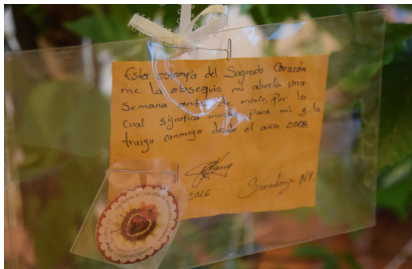 Esta estampa del Sagrado Corazón
me la obsequio mi abuela una
Semana antes de morir, por lo
cual significa mucho para mi y la
traigo conmigo desde el año 2008
2016
NY